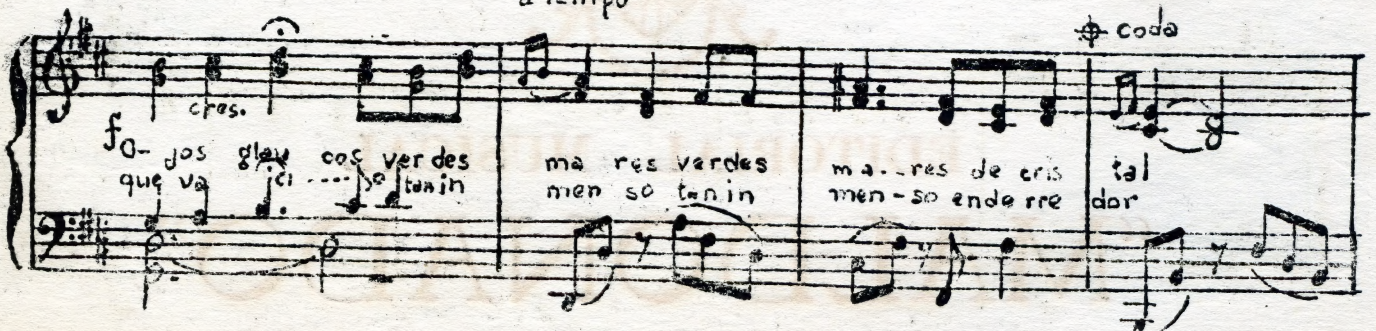 a tempo
coda
cres.
f
O- jos glau cos ver des ma res verdes ma...res de cris tal
que va ci ---- o tan in men so tan in men-so ende rre dor